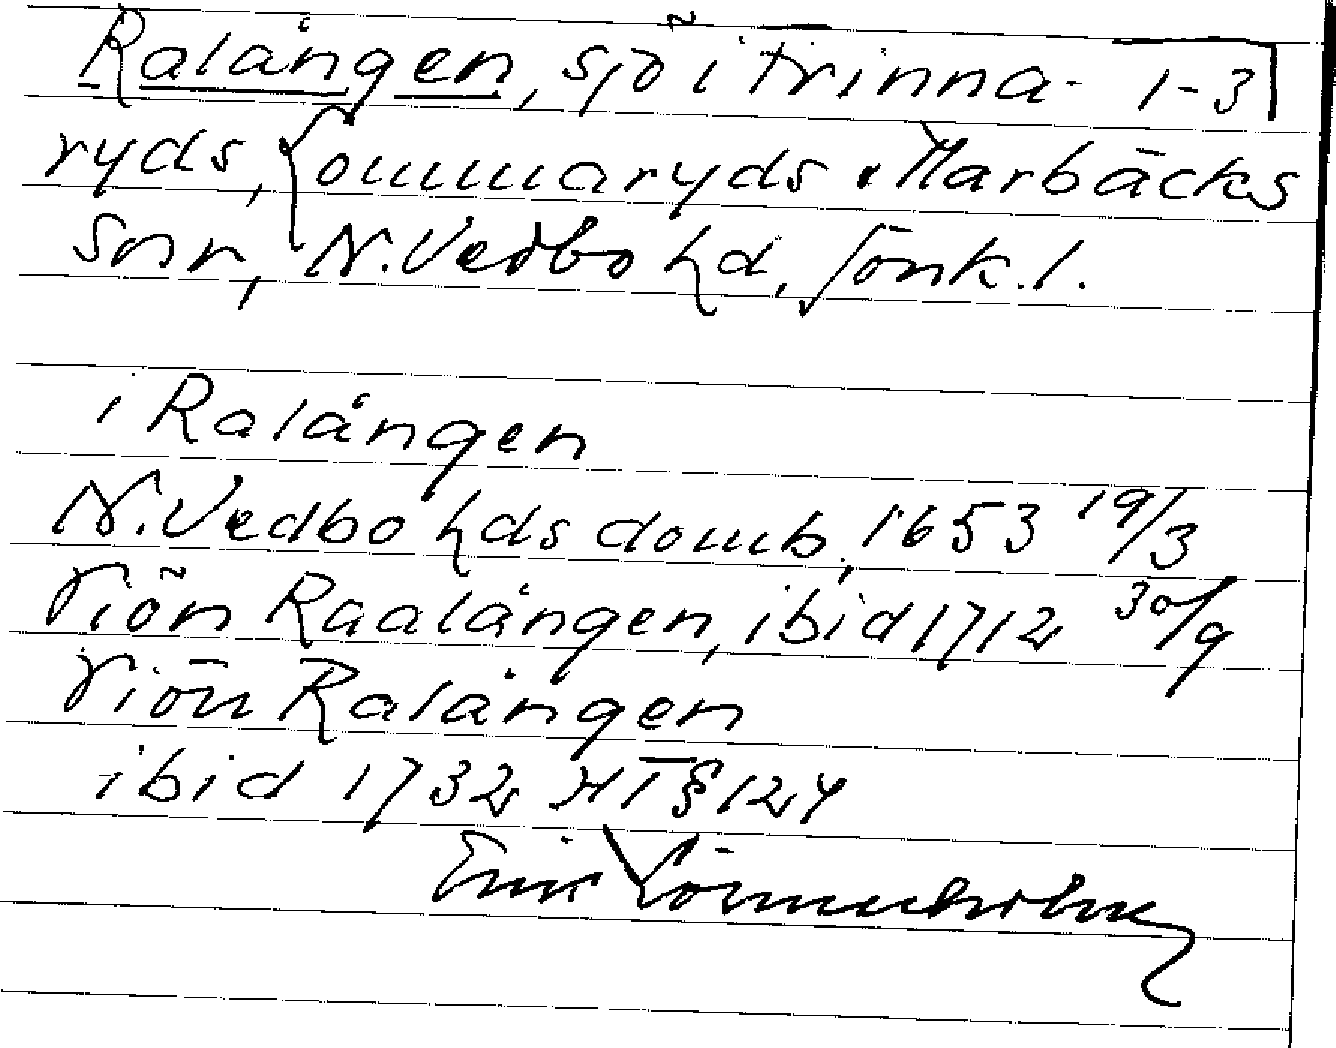 Ralången, sjö i Frinna- 1-3
ryds, Lommaryds o Marbäcks
snr, N. Vedbo hd, Jönk. l.
i Ralången
N. Vedbo hds domb, 1653 19/3
Siön Raalången, ibid 1712 30/9
Siön Ralången
ibid 1732 HT § 124
Erik